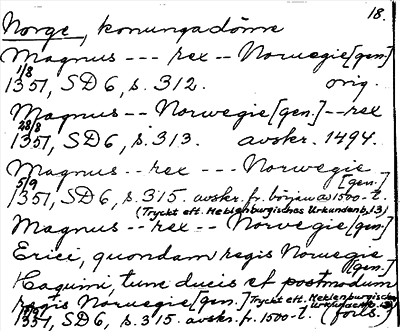 18.
Norge, konungadöme
Magnus --- rex -- Noruegie [gen.]
1/8
1351, SD 6, s. 312. orig.
Magnus -- Norwegie [gen.] -- rex
28/8
1351, SD 6, s. 313. avskr. 1494.
Magnus -- rex --- Norwegie
[gen.]
5/9
1351, SD 6, s. 315. avskr. fr. början a 1500-t.
(Tryckt eft. Meklenburgisches Urkundenb. 13)
Magnus -- rex -- Norwegie [gen.]
Erici, quondam regis Noruegie
[gen.]
Haquini, tunc ducis et postmodum
regis Noruegie [gen.] Tryckt eft. Meklenburgisches
Urkundenb. 13)
1351, SD 6, s. 315. avskr. fr. 1500-t. (forts.)